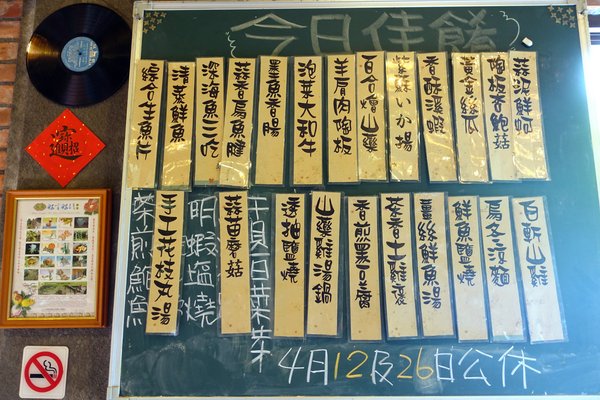 今日佳餚
蒜泥鮮蚵
陶板杏鮑菇
黃金絲瓜
香酥溪蝦
紫蘇いか揚
百合燴山藥
羊肩肉陶板
泡菜大和牛
墨魚香腸
蒜香扁魚腱
深海魚三吃
清蒸鮮魚
綜合生魚片
白斬山雞
烏冬涼麵
鮮魚鹽燒
薑絲鮮魚湯
茶香土雞濃
香煎黑豆腐
山藥雞湯鍋
透抽鹽燒
干貝白菜
蒜苗蘑菇
明蝦塩燒
手工花枝丸湯
菜煎鯧魚
4月12及26日公休
招財進寶